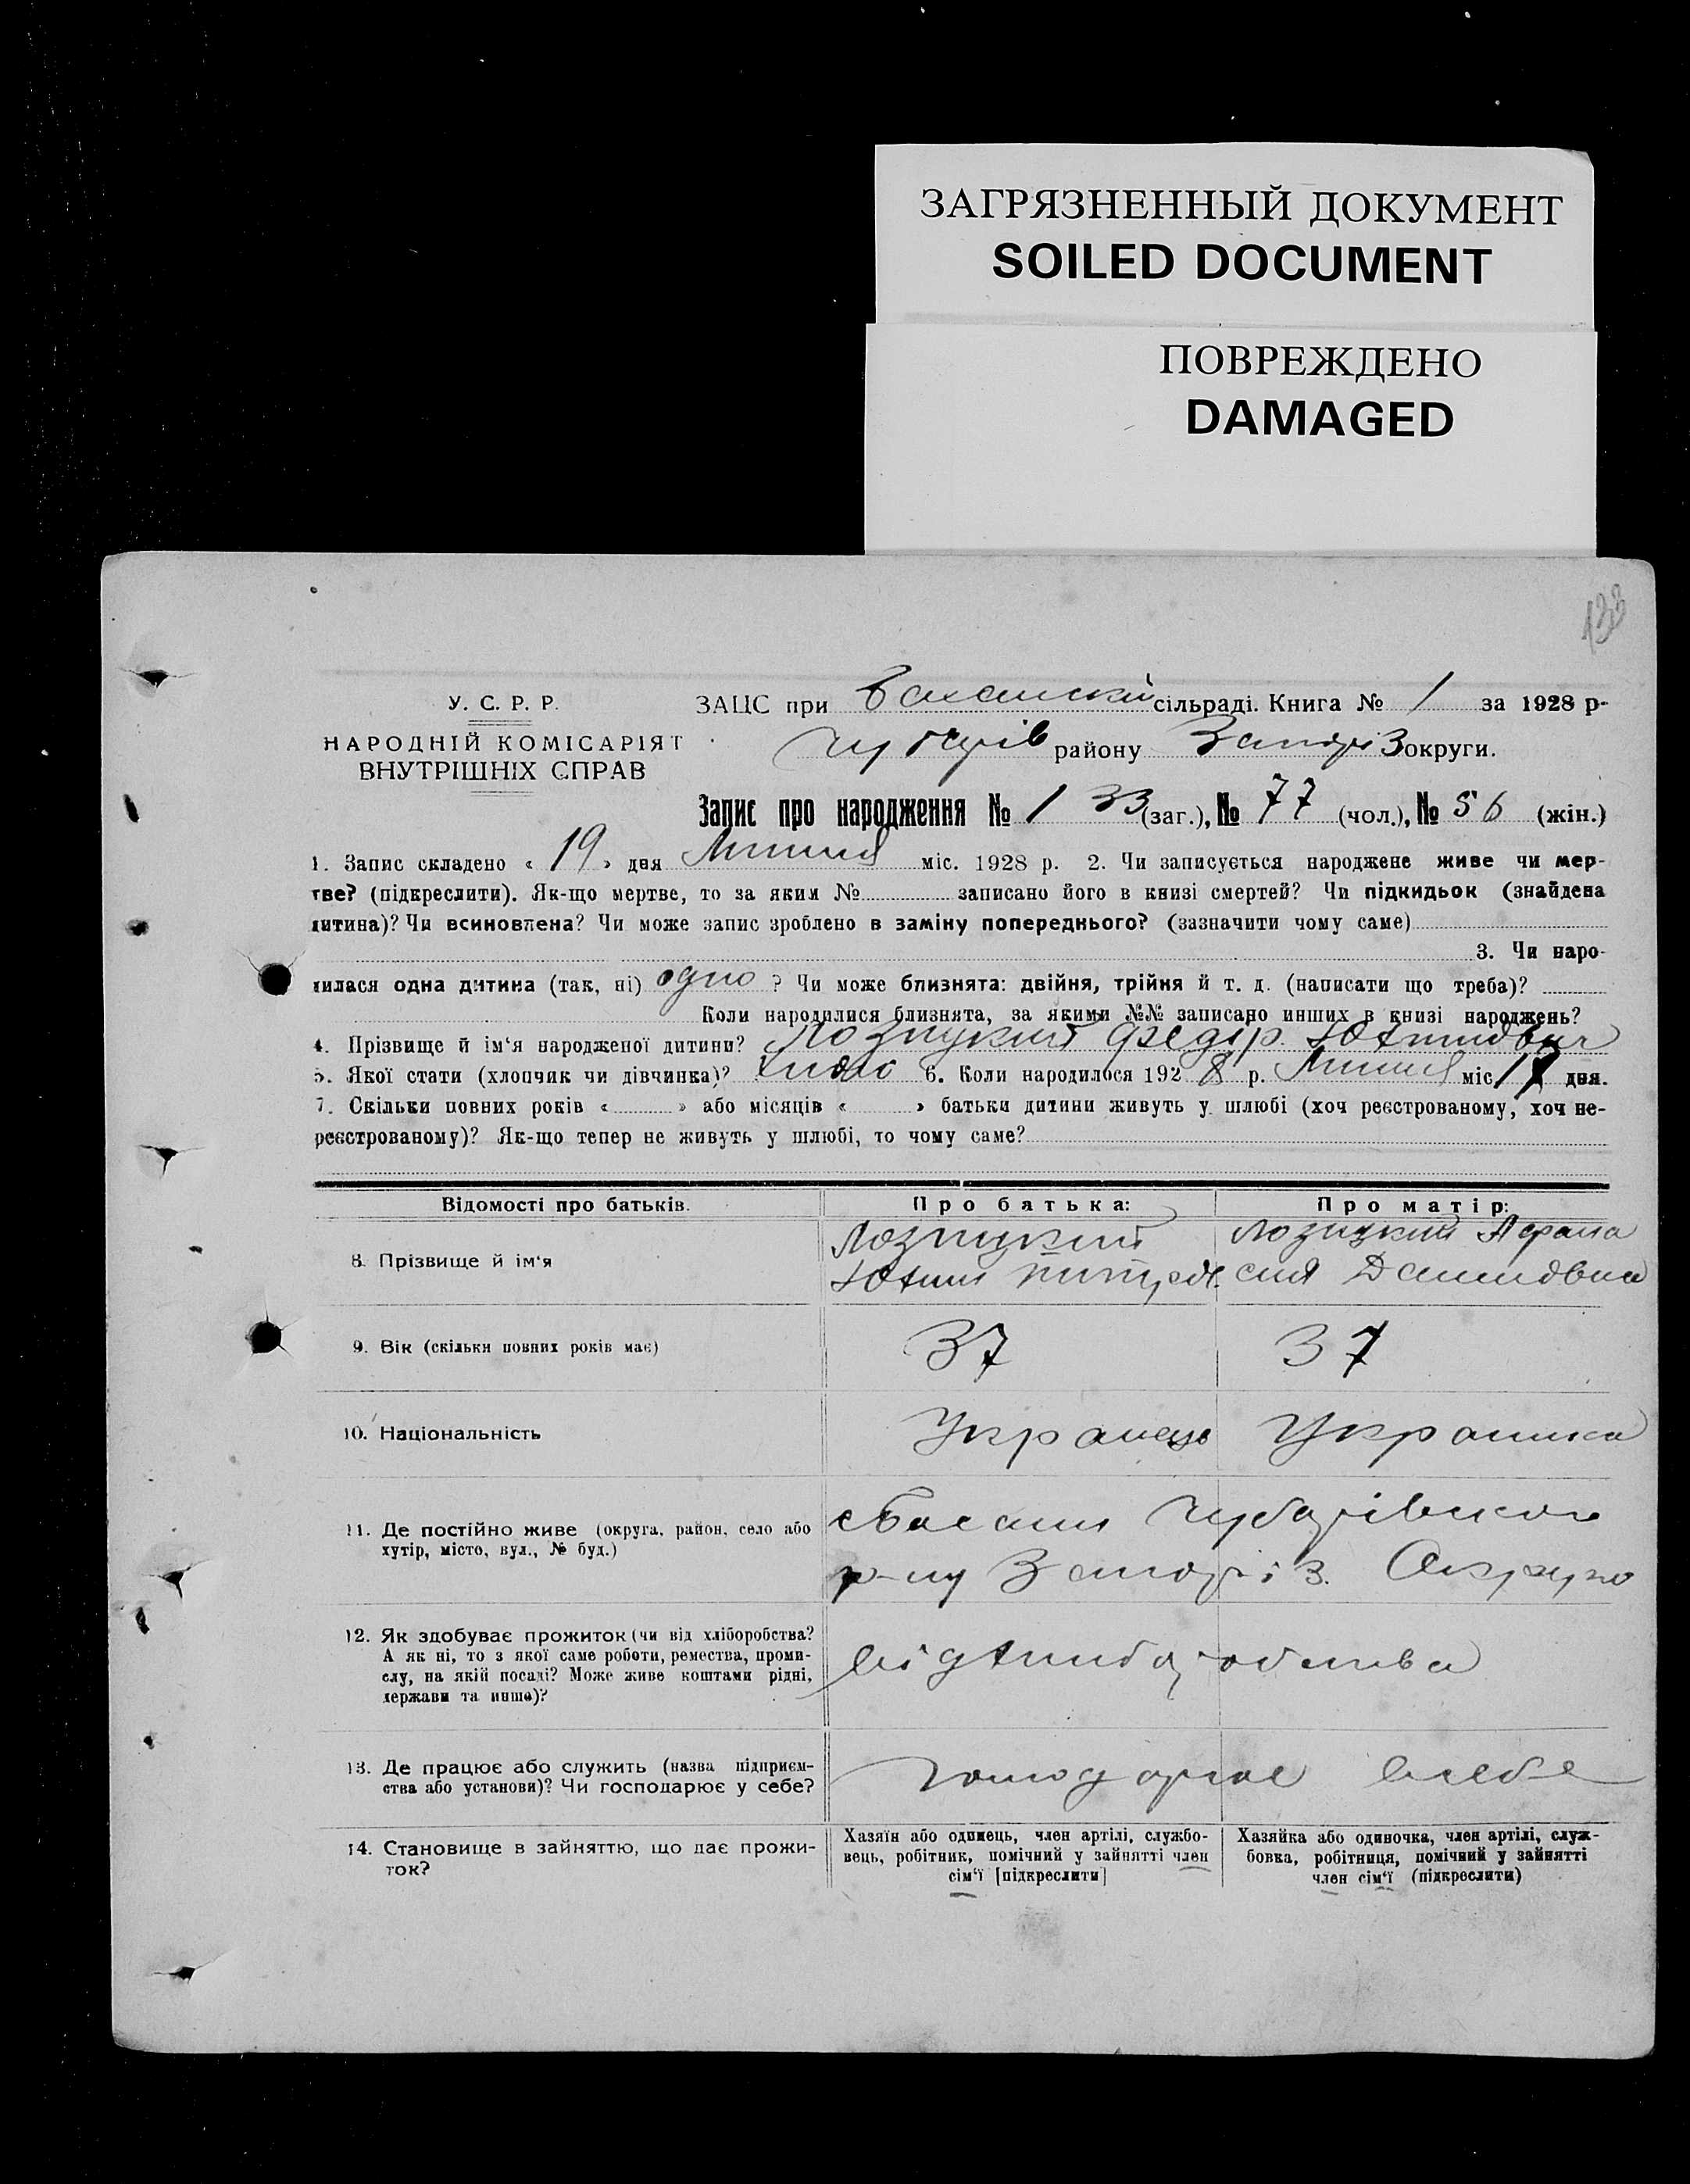 ЗАГРЯЗНЕННЫЙ ДОКУМЕНТ
SOILED DOCUMENT
ПОВРЕЖДЕНО
DAMAGED
133
У. С. Р. Р.
НАРОДНІЙ КОМІСАРІЯТ
ВНУТРІШНІХ СПРАВ
ЗАЦС при Басанській сільраді. Книга № 1 за 1928 р-
Чубарів району Запоріз округи.
Запис про народження № 133 (заг.), № 77 (чол.), № 56 (жін.)
1. Запис складено « 19 » дня Липня міс. 1928 р. 2. Чи записується народжене живе чи мер-
тве? (підкреслити). Як-що мертве, то за яким № записано його в книзі смертей? Чи підкидьок (знайдена
дитина)? Чи всиновлена? Чи може запис зроблено в заміну попереднього? (зазначити чому саме)
3. Чи наро-
дилася одна дитина (так, ні) одно ? Чи може близнята: двійня, трійня й т. д. (написати що треба)?
Коли народилися близнята, за якими №№ записано инших в книзі народжень?
4. Прізвище й ім‘я народженої дитини? Лозицкий Федір Юхимович
5. Якої стати (хлопчик чи дівчинка)? 6. Коли народилося 192 8 р. Липня міс 17 дня.
7. Скільки повних років « » або місяців « » батьки дитини живуть у шлюбі (хоч реєстрованому, хоч не-
реєстрованому)? Як-що тепер не живуть у шлюбі, то чому саме?
Відомості про батьків. Про батька: Про матір:
8. Прізвище й ім‘я
Лозицкий Лозицкий Афана
Юхим сия Данидовна
9. Вік (скільки повних років має) 37 37
10. Національність Укранець Украинка
11. Де постійно живе (округа, район, село або
хутір, місто, вул., № буд.)
с Басань Чубарівского
р-ну Запоріз. Округи
12. Як здобуває прожиток (чи від хліборобства?
А як ні, то з якої саме роботи, ремества, проми-
слу, на якій посаді? Може живе коштами рідні,
держави та инше)?
від хліборобства
13. Де працює або служить (назва підприєм-
ства або установи)? Чи господарює у себе?
господарює в себе
14. Становище в зайняттю, що дає прожи-
ток?
Хазяїн або одинець, член артілі, службо-
вець, робітник, помічний у зайнятті член
сім‘ї [підкреслити]
Хазяйка або одиночка, член артілі, служ-
бовка, робітниця, помічний у зайнятті
член сім‘ї (підкреслити)